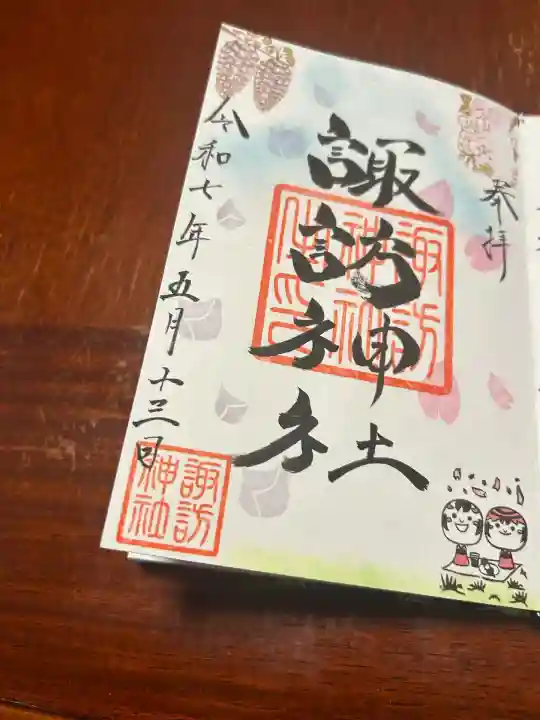 奉拝
諏訪神社
令和七年五月十三日
諏訪
神社
諏訪
神社